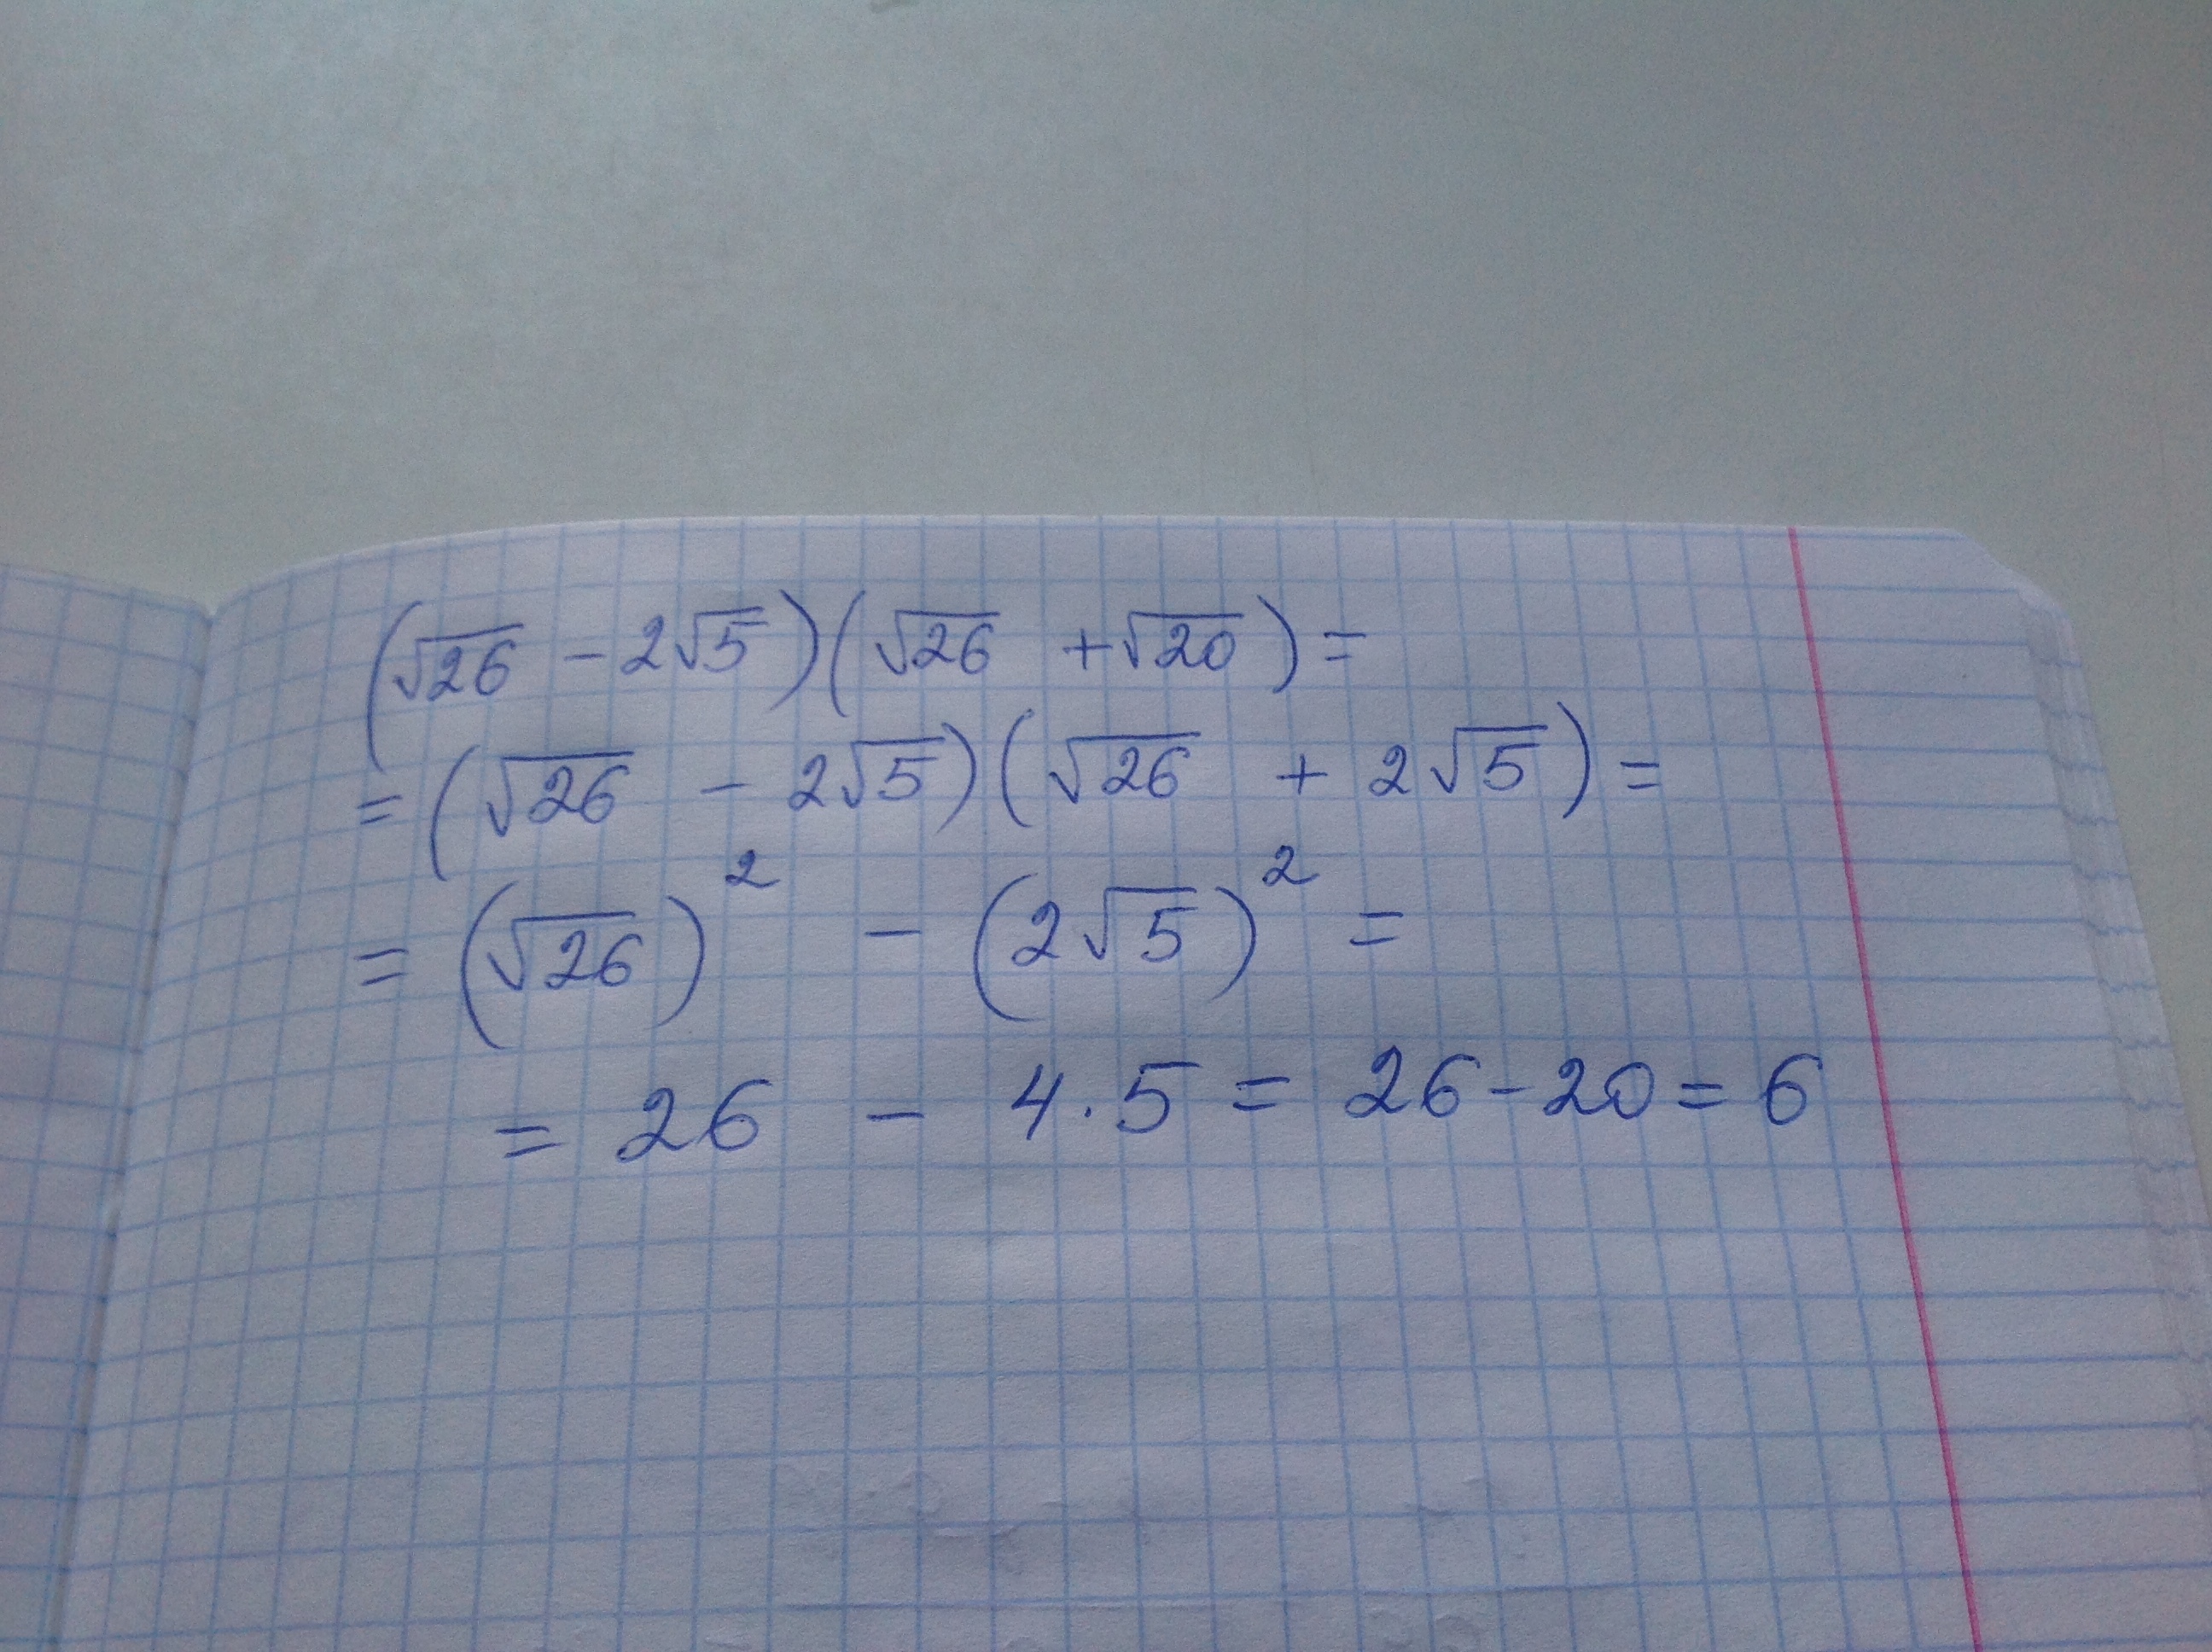 (√26 − 2√5)(√26 + √20) =
= (√26 − 2√5)(√26 + 2√5) =
= (√26)² − (2√5)² =
= 26 − 4·5 = 26 − 20 = 6